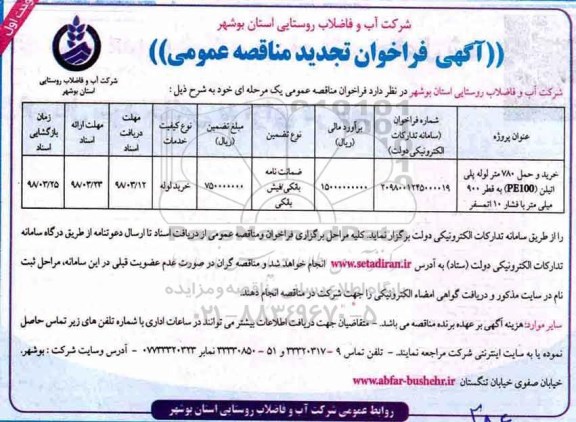 نوبت اول
شرکت آب و فاضلاب روستایی استان بوشهر
((آگهی فراخوان تجدید مناقصه عمومی))
شرکت آب و فاضلاب روستایی
استان بوشهر
شرکت آب و فاضلاب روستایی استان بوشهر در نظر دارد فراخوان مناقصه عمومی یک مرحله ای خود به شرح ذیل :
عنوان پروژه
شماره فراخوان (سامانه تدارکات الکترونیکی دولت)
برآورد مالی (ریال)
نوع تضمین
مبلغ تضمین (ریال)
نوع کیفیت خدمات
مهلت دریافت اسناد
مهلت ارائه اسناد
زمان بازگشایی اسناد
خرید و حمل ۷۸۰ متر لوله پلی
اتیلن (PE100) به قطر ۹۰۰
میلی متر با فشار ۱۰ اتمسفر
۲۰۹۸۰۰۱۲۴۵۰۰۰۰۱۹
۱۵۰۰۰۰۰۰۰۰۰
ضمانت نامه
بانکی/فیش
بانکی
۷۵۰۰۰۰۰۰۰
خرید لوله
۹۸/۰۳/۱۲
۹۸/۰۳/۲۳
۹۸/۰۳/۲۵
را از طریق سامانه تدارکات الکترونیکی دولت برگزار نماید. کلیه مراحل برگزاری فراخوان ومناقصه عمومی از دریافت اسناد تا ارسال دعوتنامه از طریق درگاه سامانه
تدارکات الکترونیکی دولت (ستاد) به آدرس www.setadiran.ir انجام خواهد شد و مناقصه گران در صورت عدم عضویت قبلی در این سامانه، مراحل ثبت
نام در سایت مذکور و دریافت گواهی امضاء الکترونیکی را جهت شرکت در مناقصه انجام دهند.
سایر موارد: هزینه آگهی بر عهده برنده مناقصه می باشد. - متقاضیان جهت دریافت اطلاعات بیشتر می توانند در ساعات اداری با شماره تلفن های زیر تماس حاصل
نموده یا به سایت اینترنتی شرکت مراجعه نمایند. - تلفن تماس ۹ -۳۳۳۲۰۳۱۷ و ۵۱ -۳۳۳۳۰۸۵۰ نمابر ۰۷۷۳۳۳۲۰۳۲۳ - آدرس وسایت شرکت : بوشهر،
خیابان صفوی خیابان تنگستان www.abfar-bushehr.ir
روابط عمومی شرکت آب و فاضلاب روستایی استان بوشهر
۰۲۱-۸۸۳۴۹۶۷۰-۵